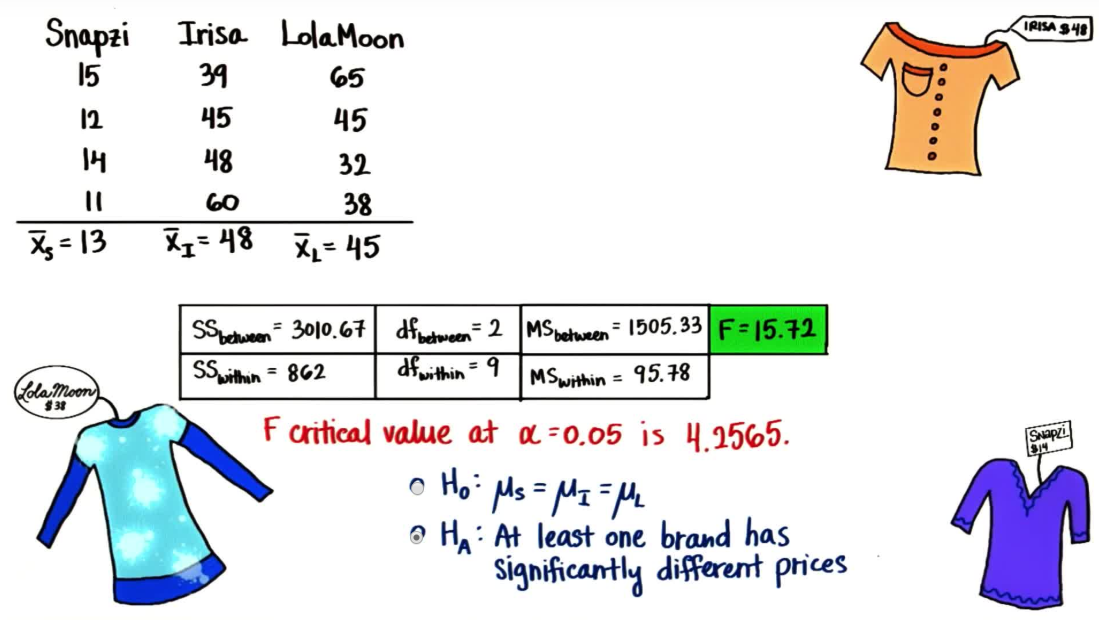 Snapzi Irisa LolaMoon
15 39 65
12 45 45
14 48 32
11 60 38
x̄S = 13 x̄I = 48 x̄L = 45
IRISA $48
SSbetween = 3010.67 dfbetween = 2 MSbetween = 1505.33 F = 15.72
SSwithin = 862 dfwithin = 9 MSwithin = 95.78
LolaMoon
$38
F critical value at α = 0.05 is 4.2565.
Snapzi
$14
H₀: μS = μI = μL
HA: At least one brand has
significantly different prices